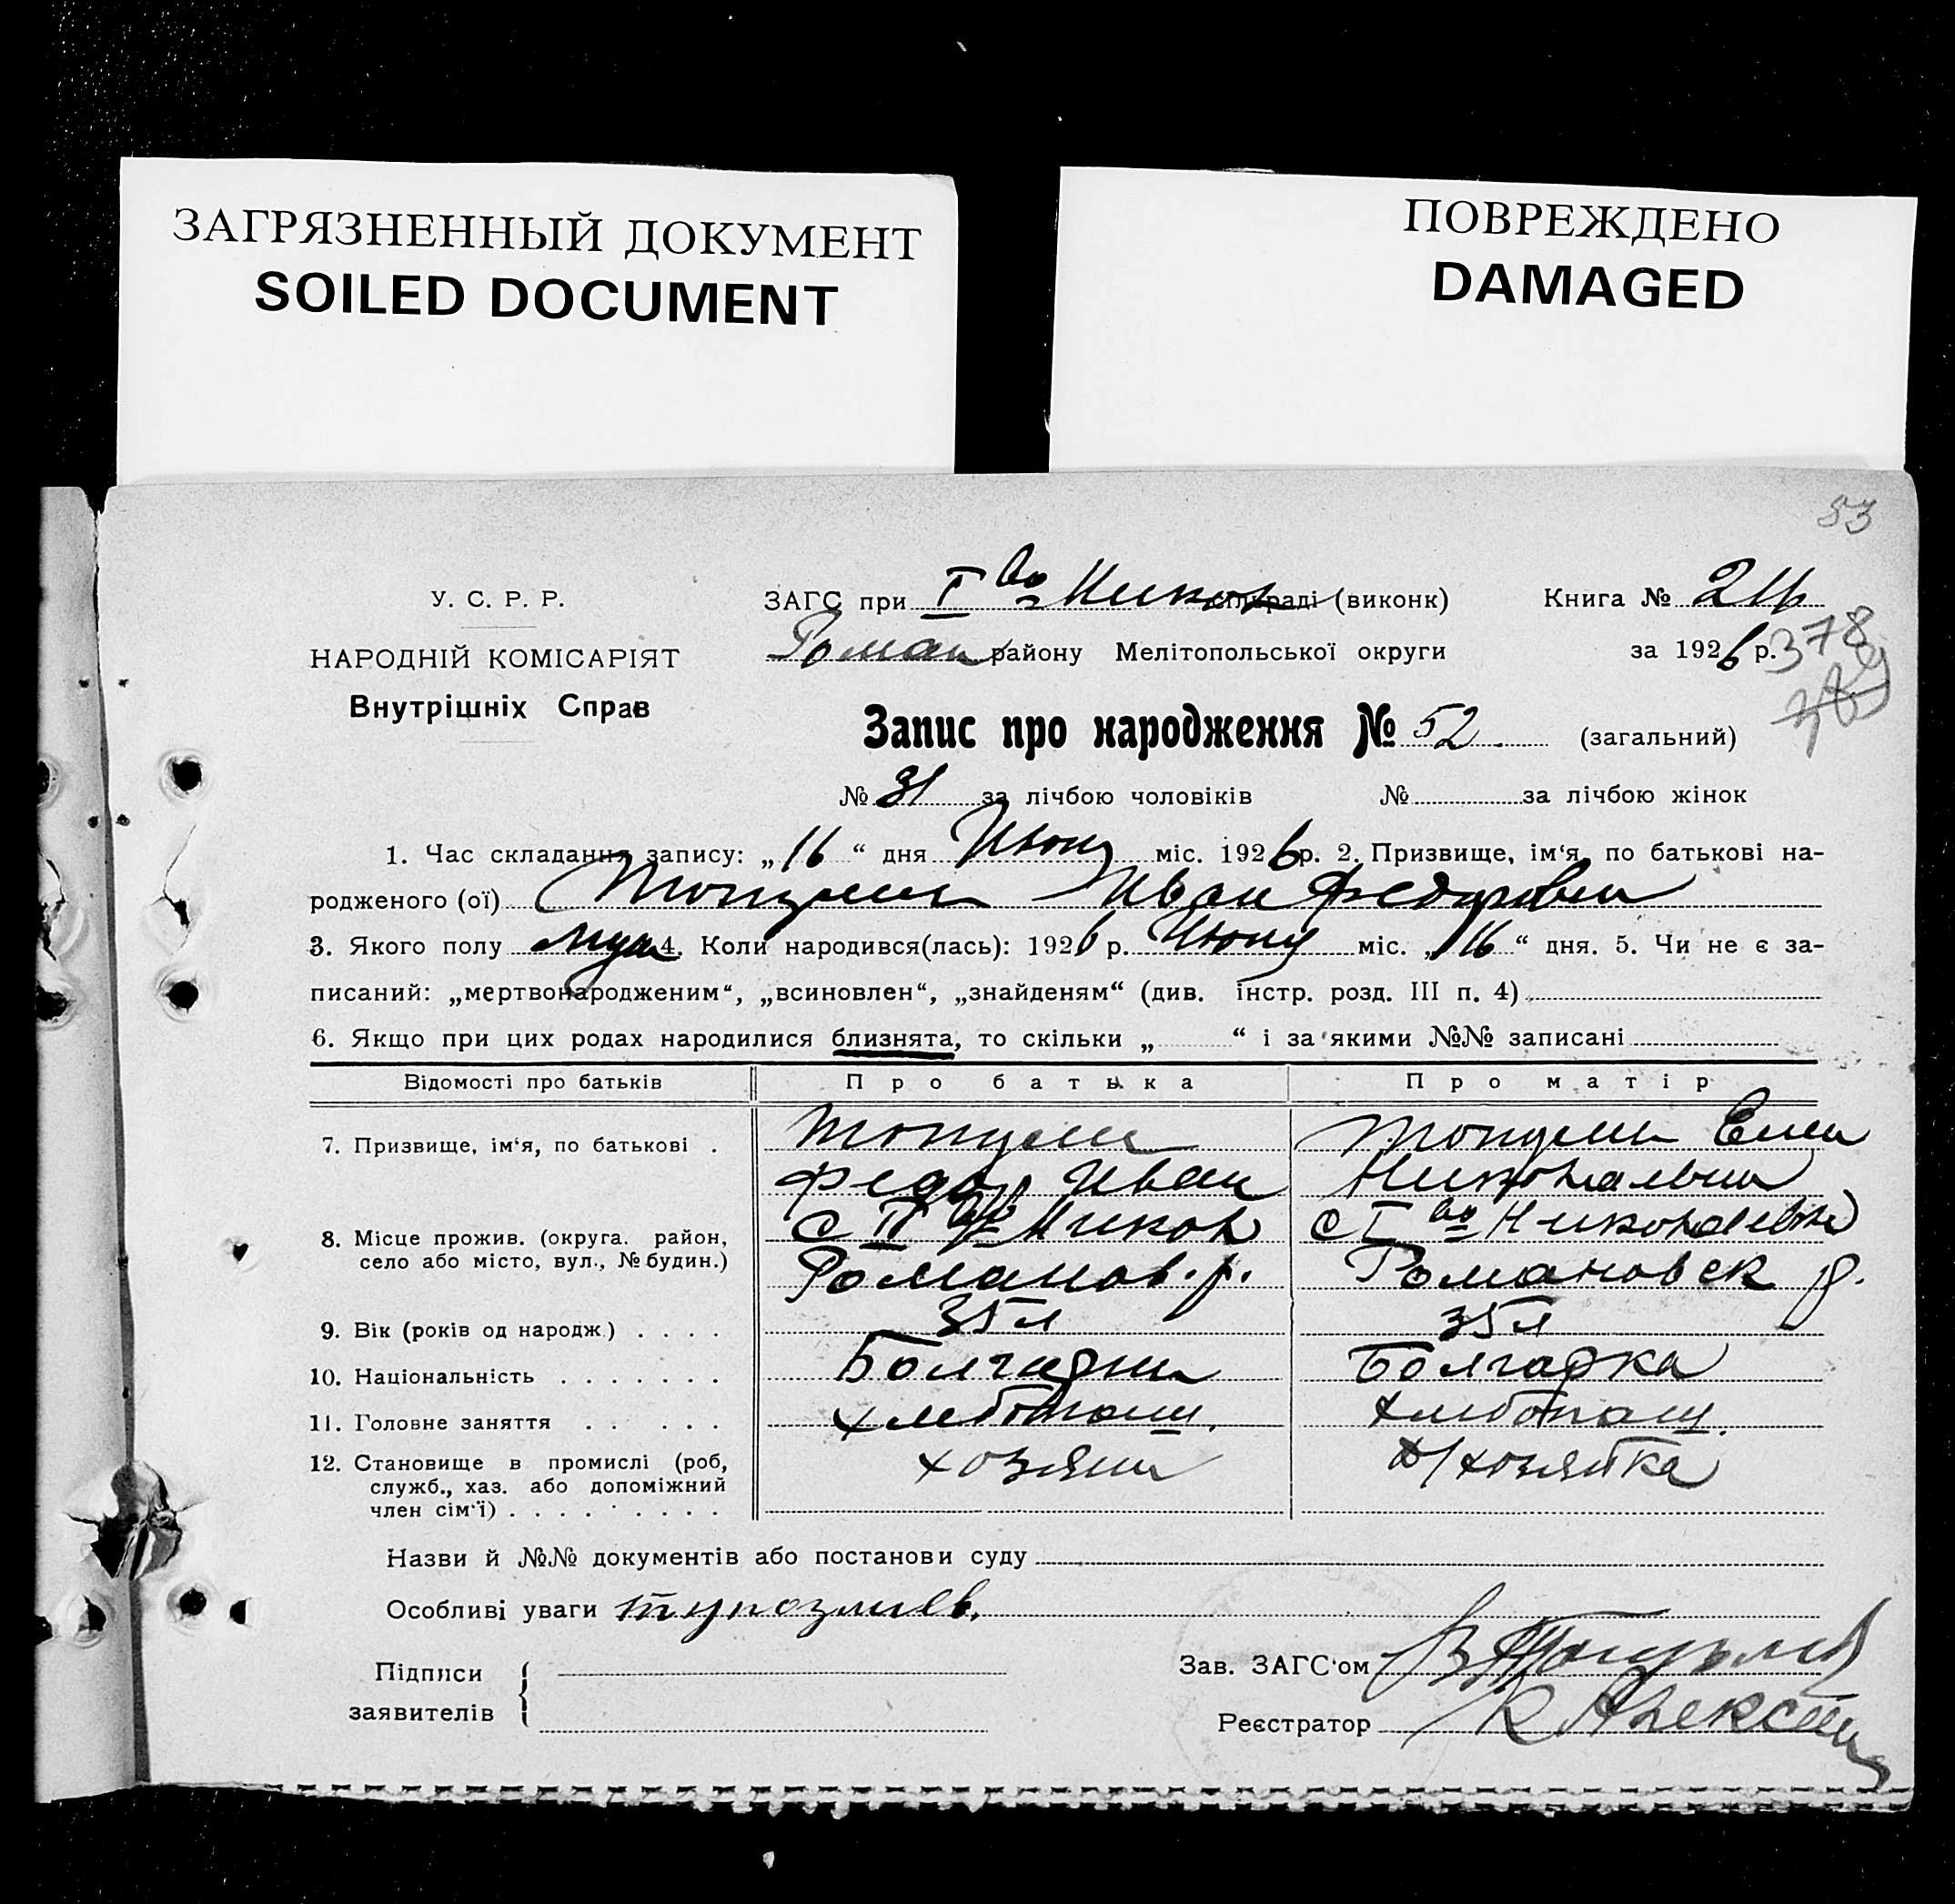 ЗАГРЯЗНЕННЫЙ ДОКУМЕНТ
SOILED DOCUMENT
ПОВРЕЖДЕНО
DAMAGED
53
У. С. Р. Р.
НАРОДНІЙ КОМІСАРІЯТ
Внутрішніх Справ
ЗАГС при I во Никол сільраді (виконк)
Роман району Мелітопольської округи
Книга № 216
за 1926 р. 378
Запис про народження № 52 (загальний)
№ 31 за лічбою чоловіків № за лічбою жінок
1. Час складання запису: „16“ дня Июня міс. 1926 р. 2. Призвище, ім'я, по батькові на-
родженого (ої) Топузлы Иван Федорович
3. Якого полу муж 4. Коли народився(лась): 1926 р. Июня міс. „16“ дня. 5. Чи не є за-
писаний: „мертвонародженим“, „всиновлен“, „знайденям“ (див. інстр. розд. III п. 4)
6. Якщо при цих родах народилися близнята, то скільки „ “ і за якими №№ записані
Відомості про батьків Про батька Про матір
7. Призвище, ім'я, по батькові .
Федор Иван
Николаевна
8. Місце прожив. (округа. район,
село або місто, вул., № будин.)
Романов. р.
с I во Николаевка
Романовск р.
9. Вік (років од народж.) . . . . 35 л 35 л
10. Національність . . . . . . . Болгарин Болгарка
11. Головне заняття . . . . . хлебопаш. хлебопаш.
12. Становище в промислі (роб,
служб., хаз. або допоміжний
член сім'ї) . . . . . . . .
хозяин д/хозяйка
Назви й №№ документів або постанови суду
Особливі уваги
Підписи
заявителів
Зав. ЗАГС'ом
Реєстратор